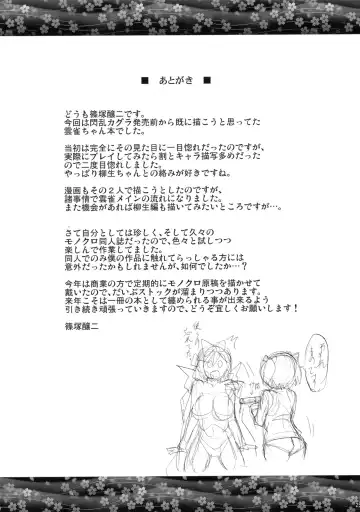 ■ あとがき ■
どうも篠塚醸二です。
今回は閃乱カグラ発売前から既に描こうと思ってた
雲雀ちゃん本でした。
当初は完全にその見た目に一目惚れだったのですが、
実際にプレイしてみたら割とキャラ描写多めだった
ので二度目惚れしました。
やっぱり柳生ちゃんとの絡みが好きですね。
漫画もその2人で描こうとしたのですが、
諸事情で雲雀メインの流れになりました。
また機会があれば柳生編も描いてみたいところですが…。
さて自分としては珍しく、そして久々の
モノクロ同人誌だったので、色々と試しつつ
楽しんで作業してました。
同人でのみ僕の作品に触れてらっしゃる方には
意外だったかもしれませんが、如何でしたか…?
今年は商業の方で定期的にモノクロ原稿を描かせて
戴いたので、だいぶストックが溜まりつつあります。
来年こそは一冊の本として纏められる事が出来るよう
引き続き頑張っていきますので、どうぞ宜しくお願いします!
篠塚醸二